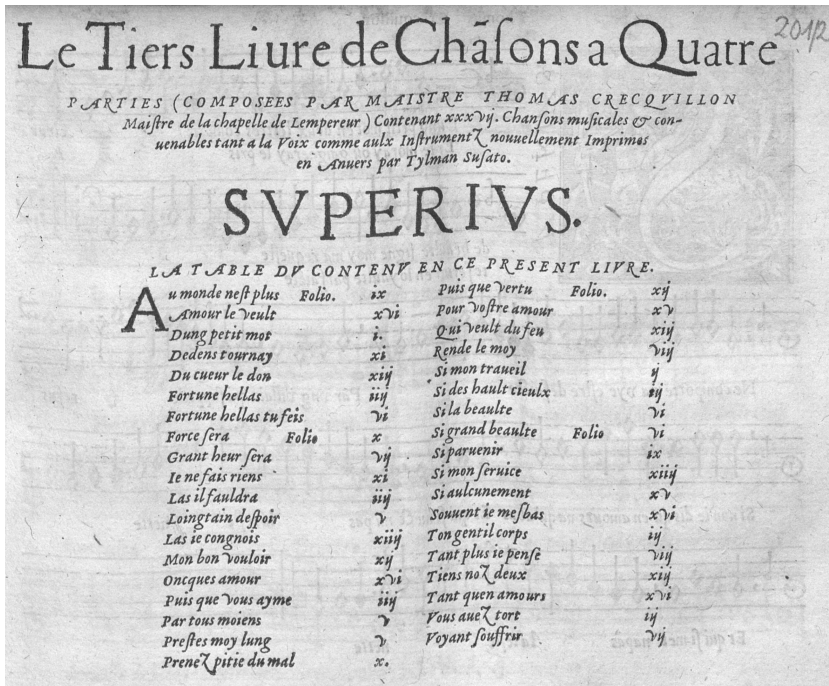 Le Tiers Liure de Chãſons a Quatre
201/2
PARTIES (COMPOSEES PAR MAISTRE THOMAS CRECQVILLON
Maiſtre de la chapelle de Lempereur) Contenant xxxvij. Chanſons muſicales & con-
uenables tant a la Voix comme aulx Inſtrumentz nouuellement Imprimes
en Anuers par Tylman Suſato.
SVPERIVS.
LA TABLE DV CONTENV EN CE PRESENT LIVRE.
Au monde neſt plus Folio. ix
Amour le veult xvi
Dung petit mot i.
Dedens tournay xi
Du cueur le don xiij
Fortune hellas iij
Fortune hellas tu feis vi
Force ſera Folio x
Grant heur ſera vij
Ie ne fais riens xi
Las il fauldra iij
Loingtain deſpoir v
Las ie congnois xiij
Mon bon vouloir xij
Oncques amour xvi
Puis que vous ayme iiij
Par tous moiens v
Preſtes moy lung v
Prenez pitie du mal x.
Puis que vertu Folio. xij
Pour voſtre amour xv
Qui veult du feu xiij
Rende le moy vij
Si mon traueil ij
Si des hault cieulx iij
Si la beaulte vi
Si grand beaulte Folio vi
Si paruenir ix
Si mon ſeruice xiiij
Si aulcunement xv
Souuent ie meſbas xvi
Ton gentil corps ij
Tant plus ie penſe viij
Tiens noz deux xij
Tant quen amours xvi
Vous auez tort ij
Voyant ſouffrir vij